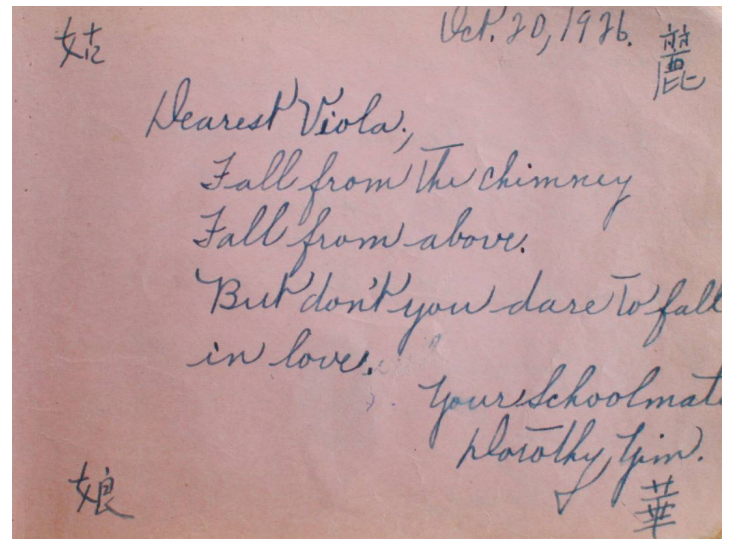 姑
Oct. 20, 1926.
麗
Dearest Viola;
Fall from the chimney
Fall from above.
But don't you dare to fall
in love.
Your Schoolmate
Dorothy Yim.
娘
華